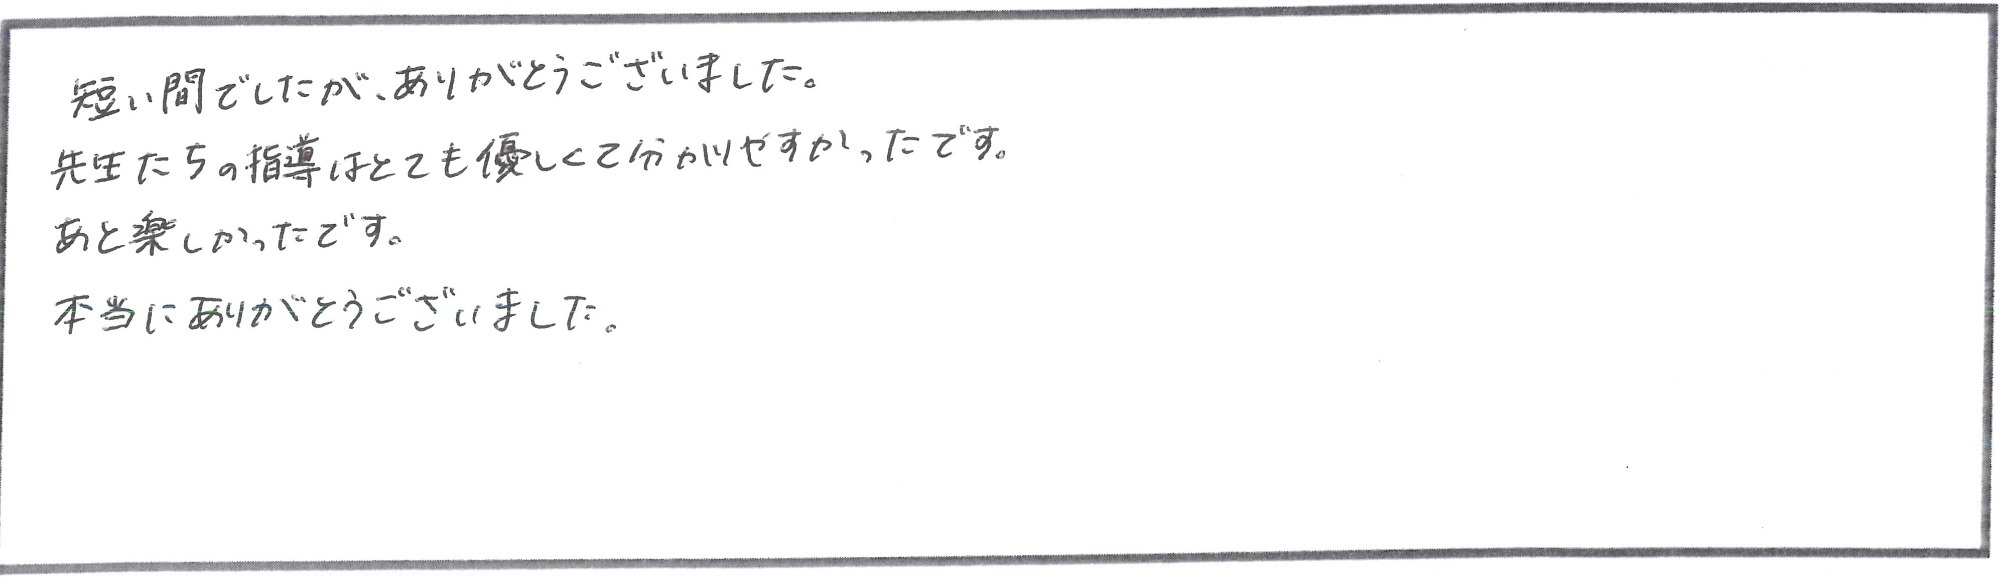 短い間でしたが、ありがとうございました。
先生たちの指導はとても優しくて分かりやすかったです。
あと楽しかったです。
本当にありがとうございました。